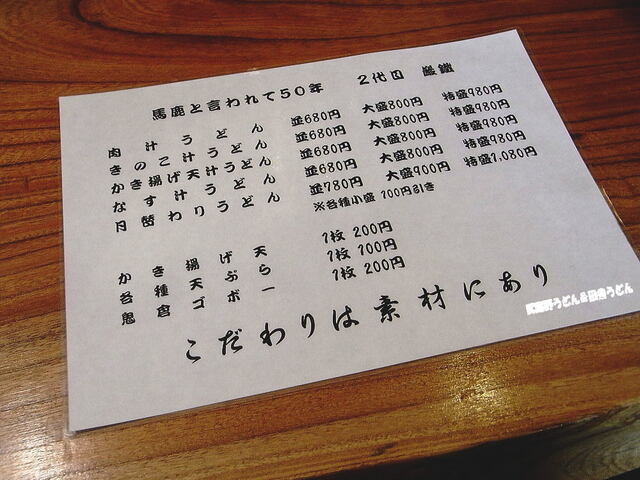 馬鹿と言われて50年 2代目
肉汁うどん 並680円 大盛800円 特盛980円
きのこ汁うどん 並680円 大盛800円 特盛980円
かき揚げ天汁うどん 並680円 大盛800円 特盛980円
なす汁うどん 並680円 大盛800円 特盛980円
月替わりうどん 並780円 大盛900円 特盛1,080円
※各種小盛 100円引き
かき揚げ天 1枚 200円
各種天ぷら 1枚 100円
鬼倉ゴボー 1枚 200円
こだわりは素材にあり
野うどん&田舎うどん